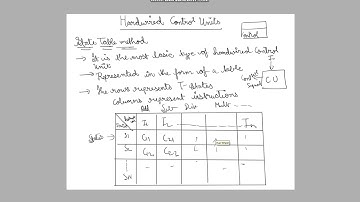 Hardwired Control Units
State Table method
Control
→ It is the most basic type of hardwired Control
units
→ Represented in the form of a table
→ The rows represents T-States
Control
Signal
CU
columns represent instructions
Add Sub Div Mult
I1 I2 In
S1 C11 C21
S2 C12 C22
SN